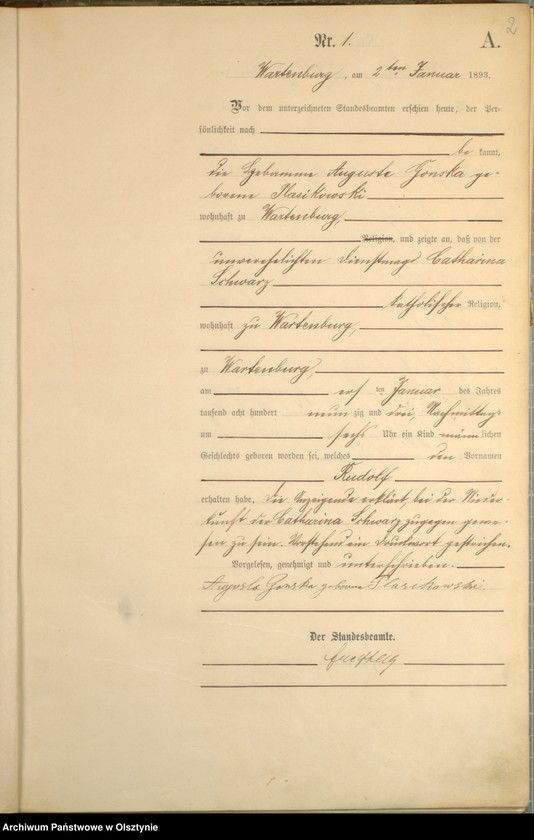 2
Nr. 1. A.
Wartenburg, am 2ten Januar 1893.
Vor dem unterzeichneten Standesbeamten erschien heute, der Per-
sönlichkeit nach
be kannt,
die Hebamme Auguste Gonska ge-
borene Plasikowski
wohnhaft zu Wartenburg,
Religion, und zeigte an, daß von der
unverehelichten Dienstmagd Catharina
Schwarz
katholischer Religion,
wohnhaft zu Wartenburg,
zu Wartenburg,
am ersten Januar des Jahres
tausend acht hundert neun zig und drei, Nachmittags
um sechs Uhr ein Kind männlichen
Geschlechts geboren worden sei, welches den Vornamen
Rudolf
erhalten habe, die Anzeigende erklärt, bei der Nieder-
kunft der Catharina Schwarz zugegen gewe-
sen zu sein. Vorstehend ein Druckwort gestrichen.
Vorgelesen, genehmigt und unterschrieben.
geborene Plasikowski
Der Standesbeamte.
Archiwum Państwowe w Olsztynie